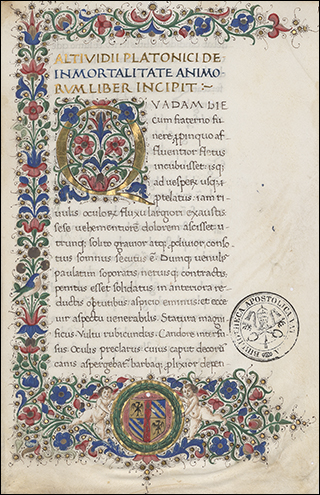 ALTIVIDII PLATONICI DE
INMORTALITATE ANIMO
RVM LIBER INCIPIT :~
QVADAM DIE
cum fraterno fu
nere ꝓpinquo af
fluentior fletus
incubuisset: isq;
ad uesperꝫ usq; ꝓ
ptelatus: iam ri
uulis oculoꝝ fluxu largiori exaustis:
sese uehementiorē dolorem ascisset: u
trunq; solito grauior atq; ꝓliuior, conso
tus somnius secutus ē: Dumq; uenulis
paulatim soporatis, neruisq; contractis,
penitus esset solidatus: in anteriora re
ductis obtutibus aspicio eminus: et ecce
uir aspectu uenerabilis: Statura magni
ficus: Vultu rubicundus: Candore interfu
sus: Oculis preclarus: cuius caput decorū
canis aspergebat: barbaq; ꝓlixior depen
BIBLIOTHECA APOSTOLICA VATICANA